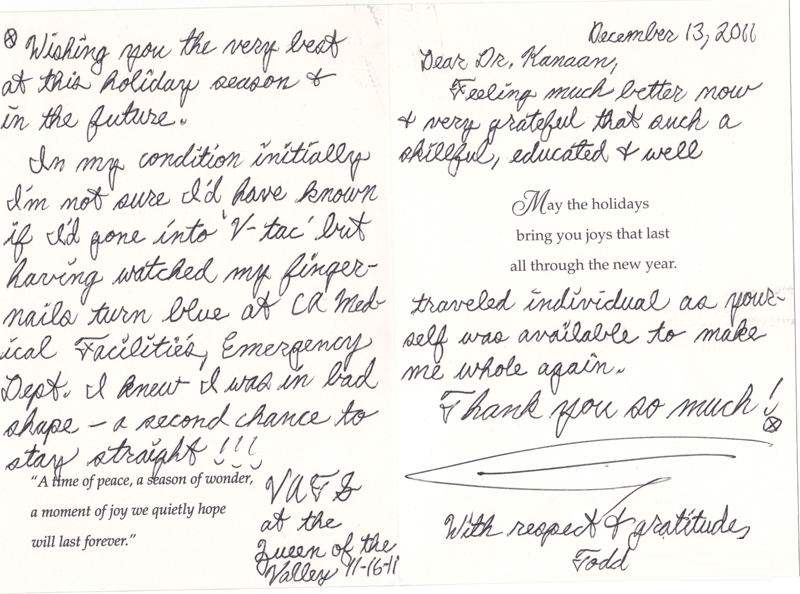 December 13, 2011
Dear Dr. Kanaan,
Feeling much better now
& very grateful that such a
skillful, educated & well
May the holidays
bring you joys that last
all through the new year.
traveled individual as your-
self was available to make
me whole again.
Thank you so much!
⊗
With respect & gratitude,
Todd
⊗ Wishing you the very best
at this holiday season &
in the future.
In my condition initially
I'm not sure I'd have known
if I'd gone into 'V-tac' but
having watched my finger-
nails turn blue at CA Med-
ical Facilities, Emergency
Dept. I knew I was in bad
shape – a second chance to
stay straight !!!
"A time of peace, a season of wonder,
a moment of joy we quietly hope
will last forever."
VATS
at the
Queen of the
Valley 11-16-11